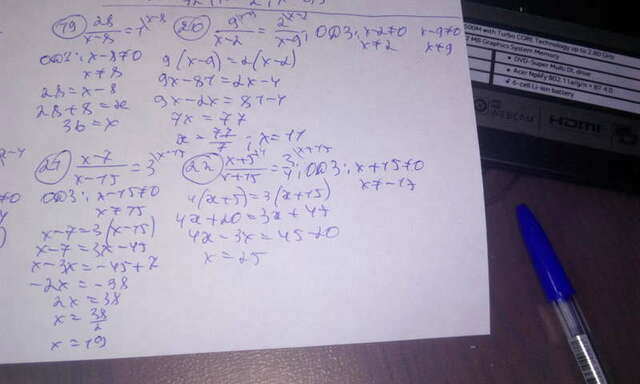 19) 28/(x-8) = 1 \x-8
ОДЗ: x-8≠0
x≠8
28 = x-8
28+8 = x
36 = x
20) 9\x-9/(x-2) = 2\x-2/(x-9); ОДЗ: x-2≠0 x-9≠0
x≠2 x≠9
9(x-9) = 2(x-2)
9x-81 = 2x-4
9x-2x = 81-4
7x = 77
x = 77/7; x = 11
21) (x-7)/(x-15) = 3 \x-15
ОДЗ: x-15≠0
x≠15
x-7 = 3(x-15)
x-7 = 3x-45
x-3x = -45+7
-2x = -38
2x = 38
x = 38/2
x = 19
22) (x+5)\4/(x+15) = 3\x+15/4; ОДЗ: x+15≠0
4(x+5) = 3(x+15)
4x+20 = 3x+45
4x-3x = 45-20
x = 25
500M with Turbo CORE Technology up to 2.80 GHz
MB Graphics System Memory
• DVD-Super Multi DL drive
• Acer Nplify 802.11a/g/n + BT 4.0
• 6-cell Li-ion battery
WEBCAM
HDMI